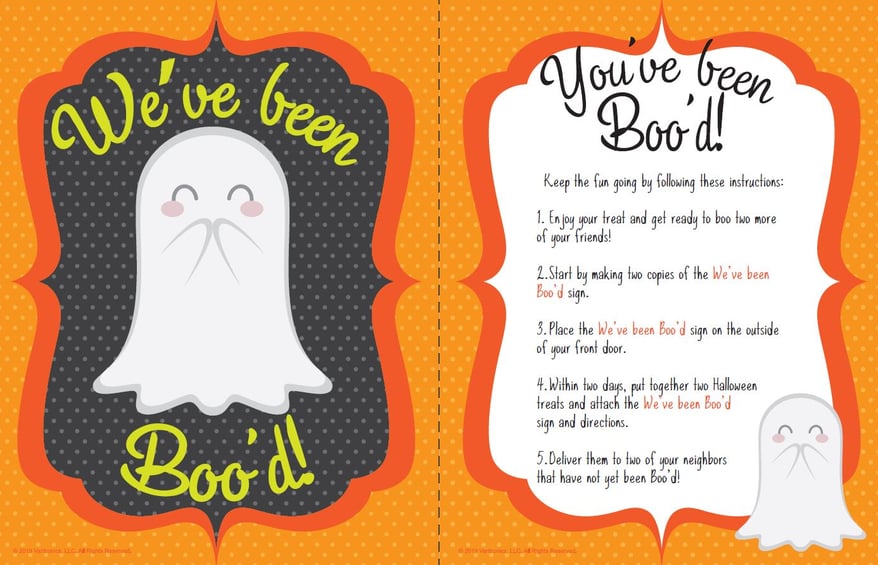 We've been
Boo'd!
© 2019 Vartronics, LLC. All Rights Reserved.
You've been
Boo'd!
Keep the fun going by following these instructions:
1. Enjoy your treat and get ready to boo two more
of your friends!
2. Start by making two copies of the We've been
Boo'd sign.
3. Place the We've been Boo'd sign on the outside
of your front door.
4. Within two days, put together two Halloween
treats and attach the We've been Boo'd
sign and directions.
5. Deliver them to two of your neighbors
that have not yet been Boo'd!
© 2019 Vartronics, LLC. All Rights Reserved.